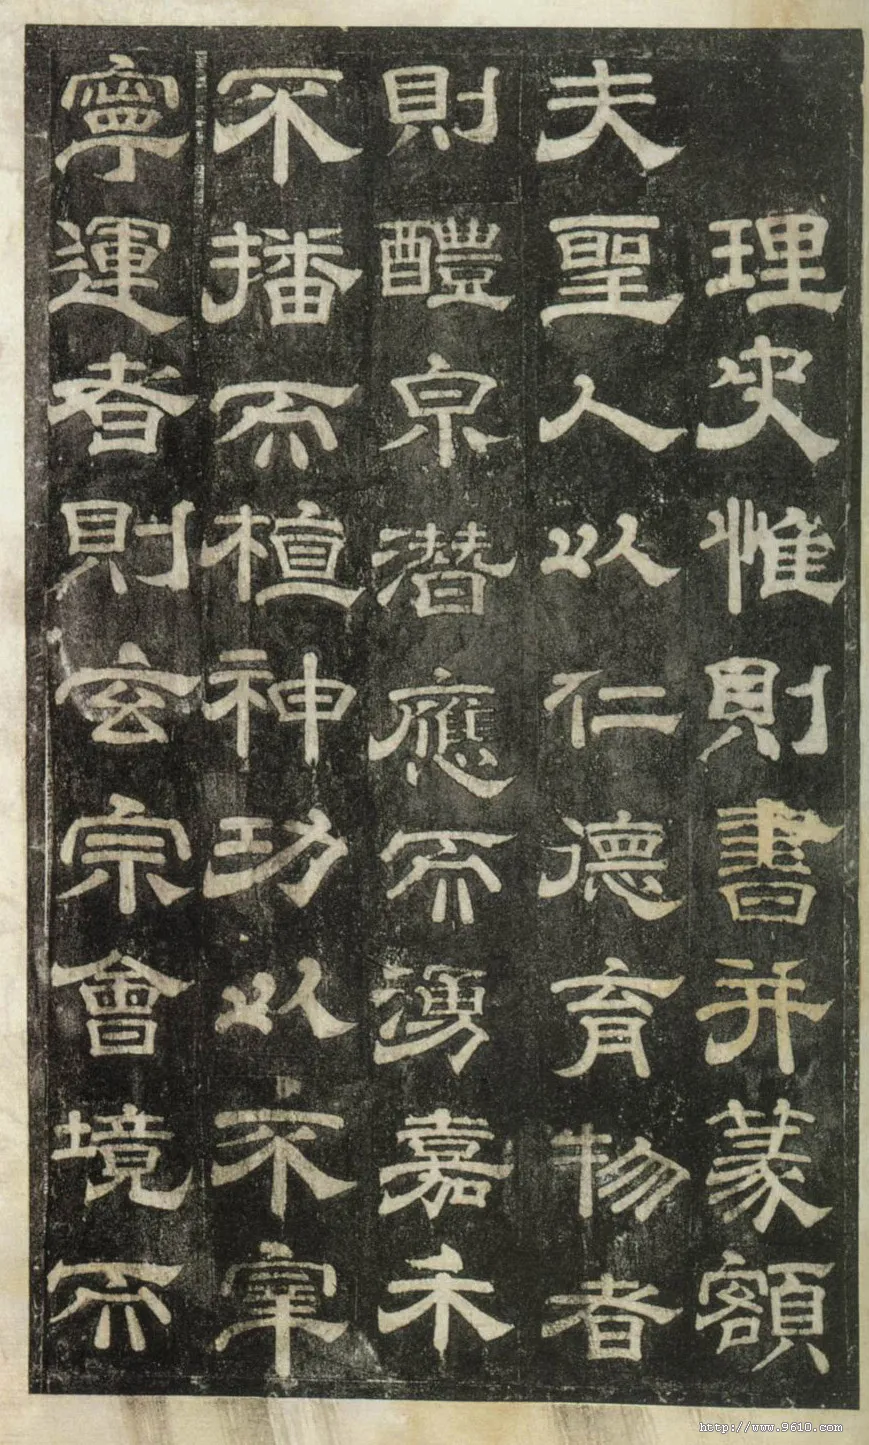 理史惟則書并篆額
夫聖人以仁德育物者
則醴泉潜應而湧嘉禾
不播而植神功以不宰
寧運者則玄宗會境而
http://www.9610.com